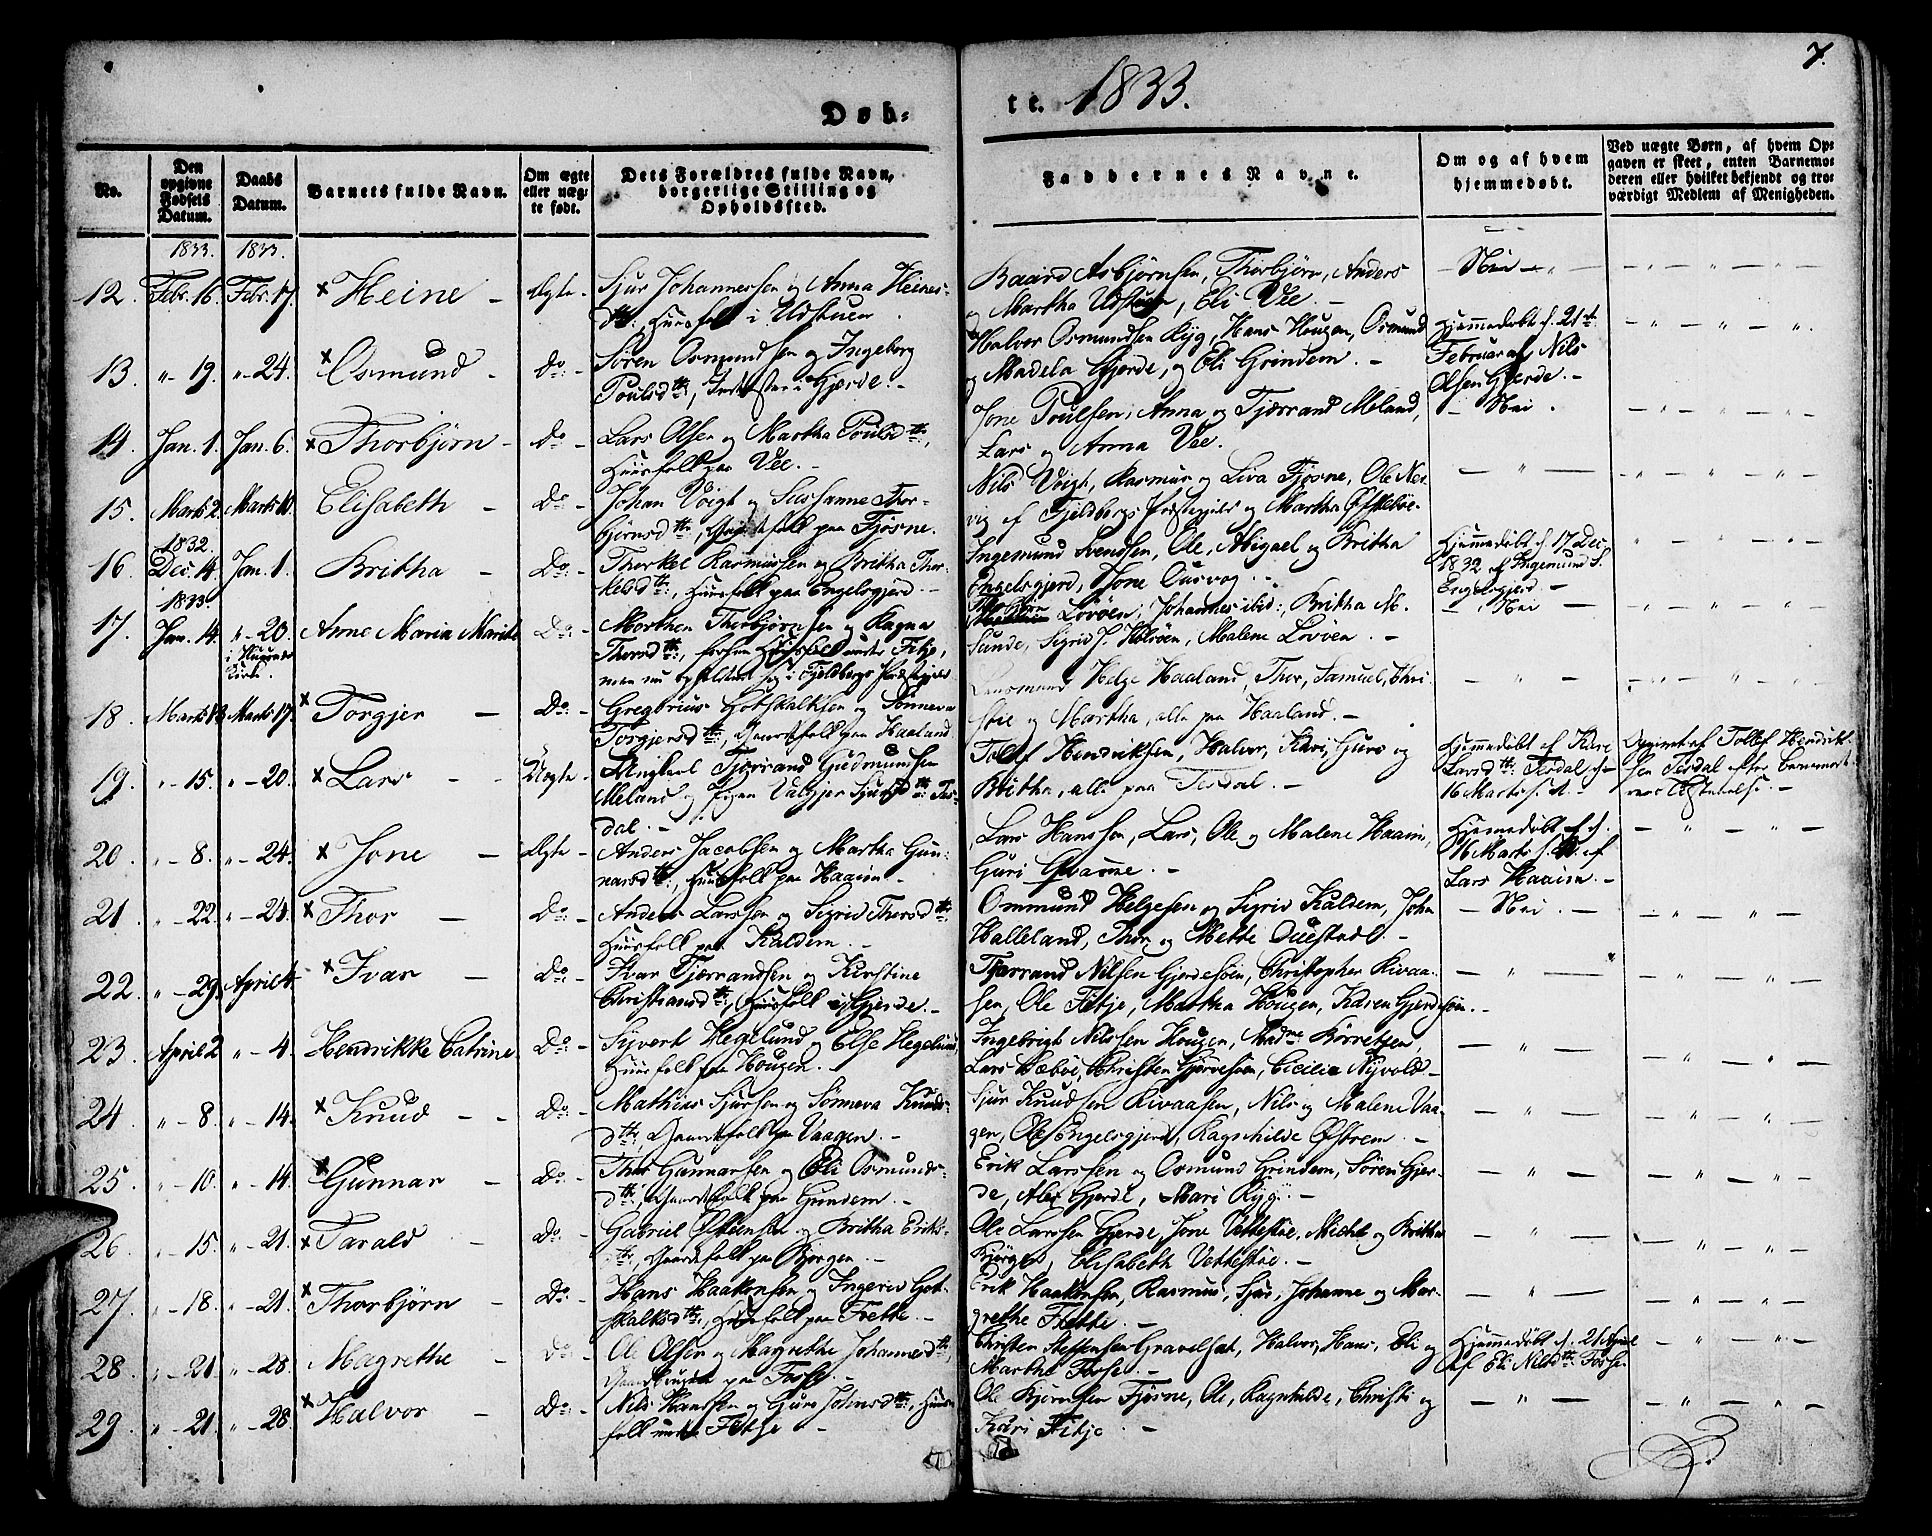 7.
Døb-
te. 1833.
No.
Den opgivne Fødsels Datum.
Daabs Datum.
Barnets fulde Navn.
Om ægte eller uægte født.
Dets Forældres fulde Navn, borgerlige Stilling og Opholdssted.
Faddernes Navne.
Om og af hvem hjemmedøbt.
Ved uægte Børn, af hvem Opgaven er skeet, enten Barnemoderen eller hvilket bekjendt og troværdigt Medlem af Menigheden.
1833. 1833.
12. Febr. 16. Febr. 17. × Heine - Ægte -
Sjur Johannessen og Anna Heines-
dtr:, Huusfolk i Udstuen.
Baard Asbjørnsen, Thorbjørn, Anders
og Martha Udstuen, Eli Vee. -
- Nei -
13. " - 19. " - 24. × Osmund - Do: -
Søren Osmundsen og Ingeborg
Poulsdtr:, Inderster i Gjerde. -
Halvor Osmundsen Ryg, Hans Hougen, Osmund
og Madela Gjerde, og Eli Grindem. -
Hjemmedøbt d. 21de
Februar af Nils
Olsen Gjerde. -
14. Jan. 1. Jan. 6. × Thorbjørn - Do: -
Lars Olsen og Martha Poulsdtr:,
Huusfolk paa Vee. -
Jone Poulsen, Anna og Tjærrand Meland,
Lars og Anna Vee.
- Nei.
15. Marts 2. Marts 10. Elisabeth - Do: -
Johan Voigt og Sussanne Thor-
bjørnsdtr:, folk paa Tjøsne.
Nils Voigt, Rasmus og Liva Tjøsne, Ole Nes-
vig af Fjeldbergs Præstegjeld og Martha
1832.
16. Dec. 14. Jan. 1. Britha - Do: -
Thorkel Rasmussen og Britha Thor-
kelsdtr:, Huusfolk paa Engelsgjerd. -
Ingemund Svendsen, Ole, Abigael og Britha
Engelsgjerd, Jone Ousvog. -
Hjemmedøbt d. 17 Dec.
1832 af Ingemund S.
Engelsgjerd. -
1833.
17. Jan. 14. " - 20. Anne Maria Marithe Do: -
Morthen Thorbjørnsen og Ragna
Thorsdtr:, forhen Huusfolk under Fitje,
men nu opholder sig i Fjeldbergs Præstegjeld
Thorbjørn Lovøen, Johannes ibid:, Britha M.
Sunde, Sigrid J. Malene Lovøen. -
- Nei -
18. Marts 13. Marts 17. × Torgjer - Do: -
Gregorius Gotskalksen og Sønneva
Torgjersdtr:, Gaardfolk paa Haaland.
Lensmand Helge Haaland, Thor, Samuel, Chri-
stie og Martha, alle paa Haaland. -
19. " - 15. " - 20. × Lars - Uægte -
Ungkarl Tjærrand Gudmundsen
Meland og Pigen Valgjer Sjursdtr: Tes-
dal. -
Tollef Hendriksen, Halvor, Kari, Guro og
Britha, alle paa Tesdal. -
Hjemmedøbt af Kari
Larsdtr: Tesdal d.
16 Marts s. A. -
Opgivet af Tollef Hendrik-
sen Tesdal efter Barnemode-
rens Tilstaaelse. -
20. " - 8. " - 24. × Jone - Ægte -
Anders Jacobsen og Martha Gun-
narsdtr:, Huusfolk paa Haaim -
Lars Hanssen, Lars, Ole og Malene Haaim,
Guri Qvamme. -
Hjemmedøbt d.
16 Marts s. A. af
Lars Haaim. -
21. " - 22. " - 24. × Thor - Do: -
Anders Larssen og Sigrid Thorsdtr:
Huusfolk paa Kaldem. -
Ommund Helgesen og Sigrid Kaldem, Joha
Halleland, Thor og Mette Ouestad. -
- Nei. -
22. " - 29. April 4. × Ivar - Do: -
Ivar Tjærrandsen og Kirstine
Christiansdtr:, Huusfolk i Gjerde. -
Tjærrand Nilsen Gjerdesøen, Christopher Rivaa-
sen, Ole Fitje, Martha Hougen, Karen Gjerdesøen. -
23. April 2. " - 4. Hendrikke Catrine Do: -
Syvert Hegelund og Else Hegelund,
Huusfolk paa Hougen. -
Ingebrigt Nilssen Hougen, Madme Børretzen,
Lars Christen Gjerdesøen, Cicilie Nyvold -
24. " - 8. " - 14. × Knud - Do: -
Mathias Sjursen og Sønneva Knuds-
dtr:, Gaardfolk paa Vaagen. -
Sjur Knudsen Rivaasen, Nils og Malene Vaa-
gen, Ole Engelsgjerd, Ragnhilde Østrem. -
25. " - 10. " - 14. × Gunnar - Do: -
Thor Gunnarsen og Eli Osmunds-
dtr:, Gaardfolk paa Grindem. -
Erik Larssen og Osmund Grindem, Søren Gjer-
de, Alex Gjerde, Mari Ryg. -
26. " - 15. " - 21. × Tarald - Do: -
Gabriel Østensen og Britha Eriks-
dtr:, Gaardfolk paa Bjørgen. -
Ole Larssen Gjerde, Jone Vettestøe, Michel og Britha
Bjørgen, Elisabeth Vettestøe. -
27. " - 18. " - 21. × Thorbjørn - Do: -
Hans Haakonsen og Ingerid Got-
skalksdtr:, Huusfolk paa Frette. -
Erik Haakonsen, Rasmus, Sjur, Johanne og Mar-
grethe Frette. -
28. " - 21. " - 28. Magrethe - Do: -
Ole Olsen og Magrethe Johannesdtr:,
paa Tosse. -
Christen Steffensen Gravelsæt, Halvor, Hans, Eli og
Martha Tosse. -
Hjemmedøbt d. 21 April
af Eli Nilsdtr: Tosse.
29. " - 21. " - 28. × Halvor - Do: -
Nils Hanssen og Guro Johnsdtr:, Huus-
folk under Fitje -
Ole Bjørnsen Tjøsne, Ole, Ragnhilde, Christi og
Kari Fitje -